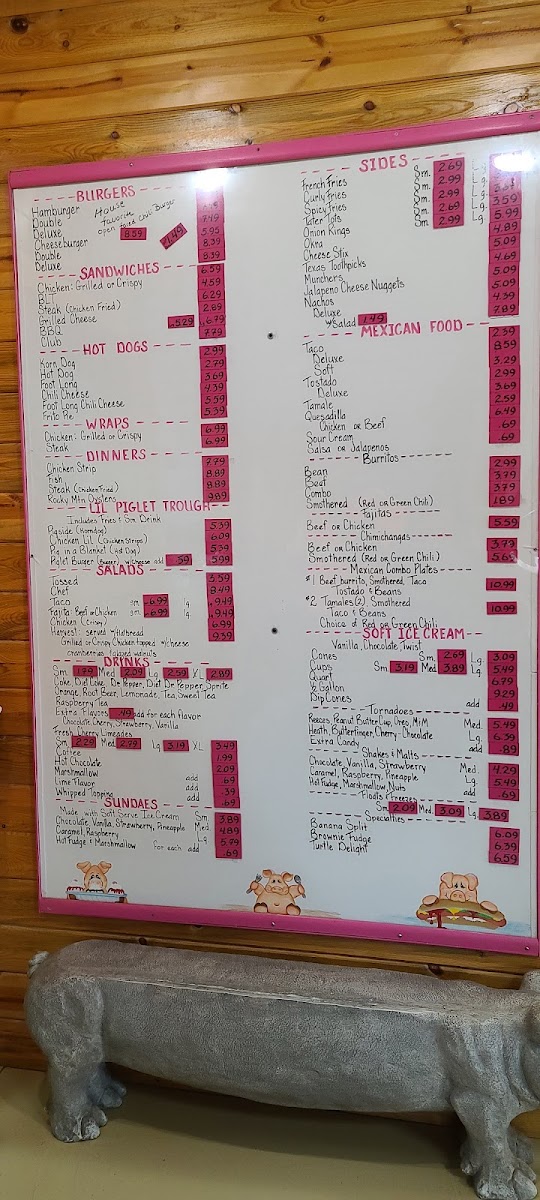 BURGERS
Hamburger
Double 7.49
Deluxe 8.59 5.95
House favorite open face Chili Burger
Cheeseburger 1.49 8.39
Double 8.39
Deluxe
SANDWICHES 6.59
Chicken: Grilled or Crispy 4.59
BLT 6.29
Steak (Chicken Fried) 2.89
Grilled Cheese
BBQ 5.29 6.79
Club 7.79
HOT DOGS
Korn Dog 2.99
Hot Dog 2.79
Foot Long 3.69
Chili Cheese 4.39
Foot Long Chili Cheese 5.59
Frito Pie 5.39
WRAPS
Chicken: Grilled or Crispy 6.99
Steak 6.99
DINNERS
Chicken Strip 7.79
Fish 8.89
Steak (Chicken Fried) 8.89
Rocky Mtn Oysters 9.89
LIL PIGLET TROUGH
Includes Fries & Sm. Drink
Pigside (Korndog) 5.39
Chicken Lil (Chicken Strips) 6.09
Pig in a Blanket (Hot Dog) 5.39
Piglet Burger (Burger) w/cheese add .59 5.99
SALADS
Tossed 5.59
Chef 8.49
Taco sm 6.99 lg 9.49
Fajita: Beef or Chicken sm 6.99 lg 9.49
Chicken (Crispy) 6.99
Harvest: served w/flatbread 9.39
Grilled or Crispy Chicken topped w/cheese
cranberries & glazed walnuts
DRINKS
Sm 1.79 Med 2.09 Lg 2.59 XL 2.89
Coke, Diet Coke, Dr. Pepper, Diet Dr Pepper, Sprite
Orange, Root Beer, Lemonade, Tea, Sweet Tea
Raspberry Tea
Extra Flavors .49 add for each flavor
Chocolate, Cherry, Strawberry, Vanilla
Fresh Cherry Limeades
Sm 2.29 Med 2.79 Lg 3.19 XL 3.49
Coffee 1.99
Hot Chocolate 2.09
Marshmallow add .69
Lime Flavor add .39
Whipped Topping add .69
SUNDAES
Made with Soft Serve Ice Cream Sm 3.89
Chocolate, Vanilla, Strawberry, Pineapple Med. 4.89
Caramel, Raspberry Lg. 5.79
Hot Fudge & Marshmallow for each add .69
SIDES
French Fries Sm. 2.69 Lg.
Curly Fries Sm. 2.99 Lg.
Spicy Fries Sm. 2.99 Lg. 3.59
Tater Tots Sm. 2.69 Lg.
Onion Rings Sm. 2.99 Lg. 5.99
Okra 4.89
Cheese Stix 5.09
Texas Toothpicks 4.69
Munchers 5.09
Jalapeno Cheese Nuggets 5.09
Nachos 4.39
Deluxe 7.89
w/Salad 1.49
MEXICAN FOOD
Taco 2.39
Deluxe 8.59
Soft 3.29
Tostado 2.99
Deluxe 3.69
Tamale 2.59
Quesadilla 6.49
Chicken or Beef
Sour Cream .69
Salsa or Jalapenos .69
Burritos
Bean 2.99
Beef 3.79
Combo 3.79
Smothered (Red or Green Chili) 1.89
Fajitas
Beef or Chicken 5.59
Chimichangas
Beef or Chicken 3.79
Smothered (Red or Green Chili) 5.69
Mexican Combo Plates
#1 Beef burrito, Smothered, Taco 10.99
Tostado & Beans
#2 Tamales (2) Smothered 10.99
Taco & Beans
Choice of Red or Green Chili
SOFT ICE CREAM
Vanilla, Chocolate, Twist
Cones Sm. 2.69 Lg. 3.09
Cups Sm. 3.19 Med. 3.89 Lg. 5.49
Quart 6.79
1/2 Gallon 9.29
Dip Cones add .49
Tornadoes
Reeces Peanut Butter Cup, Oreo, M&M Med. 5.49
Heath, Butterfinger, Cherry-Chocolate Lg. 6.39
Extra Candy add .89
Shakes & Malts
Chocolate, Vanilla, Strawberry Med. 4.29
Caramel, Raspberry, Pineapple Lg. 5.49
Hot Fudge, Marshmallow, Nuts add .69
Floats & Freezes
Sm 2.09 Med. 3.09 Lg. 3.89
Specialties
Banana Split 6.09
Brownie Fudge 6.39
Turtle Delight 6.59